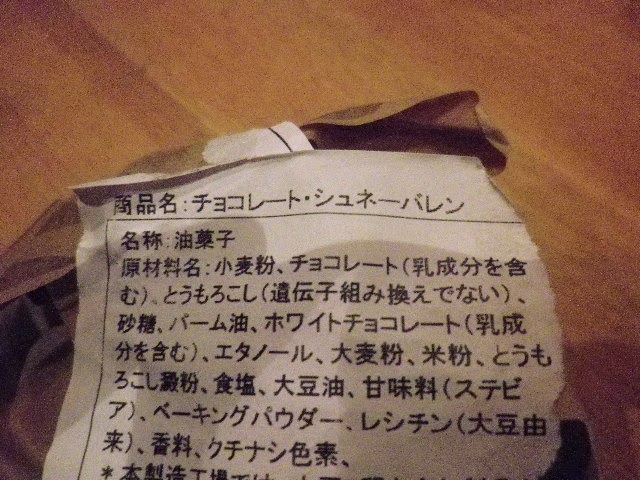 商品名:チョコレート・シュネーバレン
名称:油菓子
原材料名:小麦粉、チョコレート(乳成分を含
む)、とうもろこし(遺伝子組み換えでない)、
砂糖、パーム油、ホワイトチョコレート(乳成
分を含む)、エタノール、大麦粉、米粉、とうも
ろこし澱粉、食塩、大豆油、甘味料(ステビ
ア)、ベーキングパウダー、レシチン(大豆由
来)、香料、クチナシ色素、
*本製造工場では